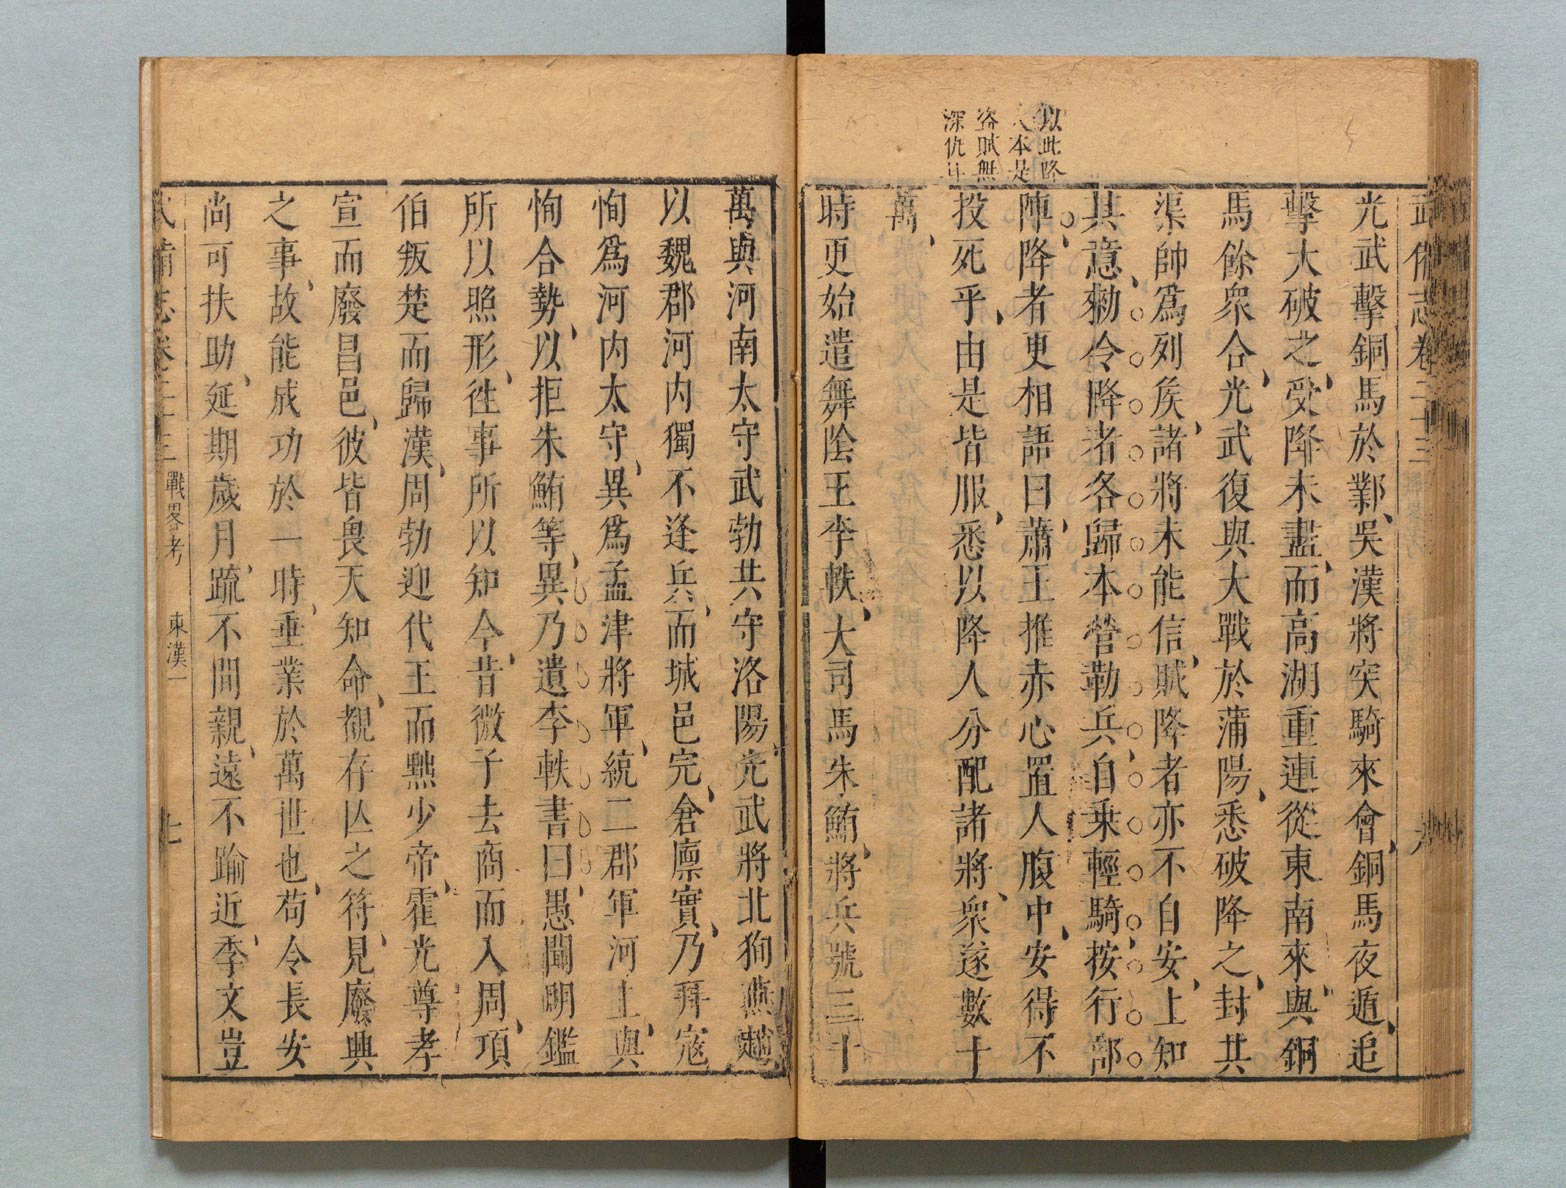 武備志卷二十三
光武擊銅馬於鄴吳漢將突騎來會銅馬夜遁追
擊大破之受降未盡而高湖重連從東南來與銅
馬餘衆合光武復與大戰於蒲陽悉破降之封其
渠帥爲列矦諸將未能信賊降者亦不自安上知
其意勑令降者各歸本營勒兵自乗輕騎按行部
陣降者更相語曰蕭王推赤心置人腹中安得不
投死乎由是皆服悉以降人分配諸將衆遂數十
萬
時更始遣舞陰王李軼大司馬朱鮪將兵號三十
以此降
人本是
盗賊無
深仇
萬與河南太守武勃共守洛陽光武將北狥燕趙
以魏郡河内獨不逢兵而城邑完倉廪實乃拜寇
恂爲河内太守異爲孟津將軍統二郡軍河上與
恂合勢以拒朱鮪等異乃遺李軼書曰愚聞明鑑
所以照形徃事所以知今昔微子去商而入周項
伯叛楚而歸漢周勃迎代王而黜少帝霍光尊孝
宣而廢昌邑彼皆畏天知命覩存亾之符見廢興
之事故能成功於一時垂業於萬世也苟令長安
尚可扶助延期歲月疏不間親遠不踰近季文豈
武備志卷二十三 戰畧考 東漢一 七